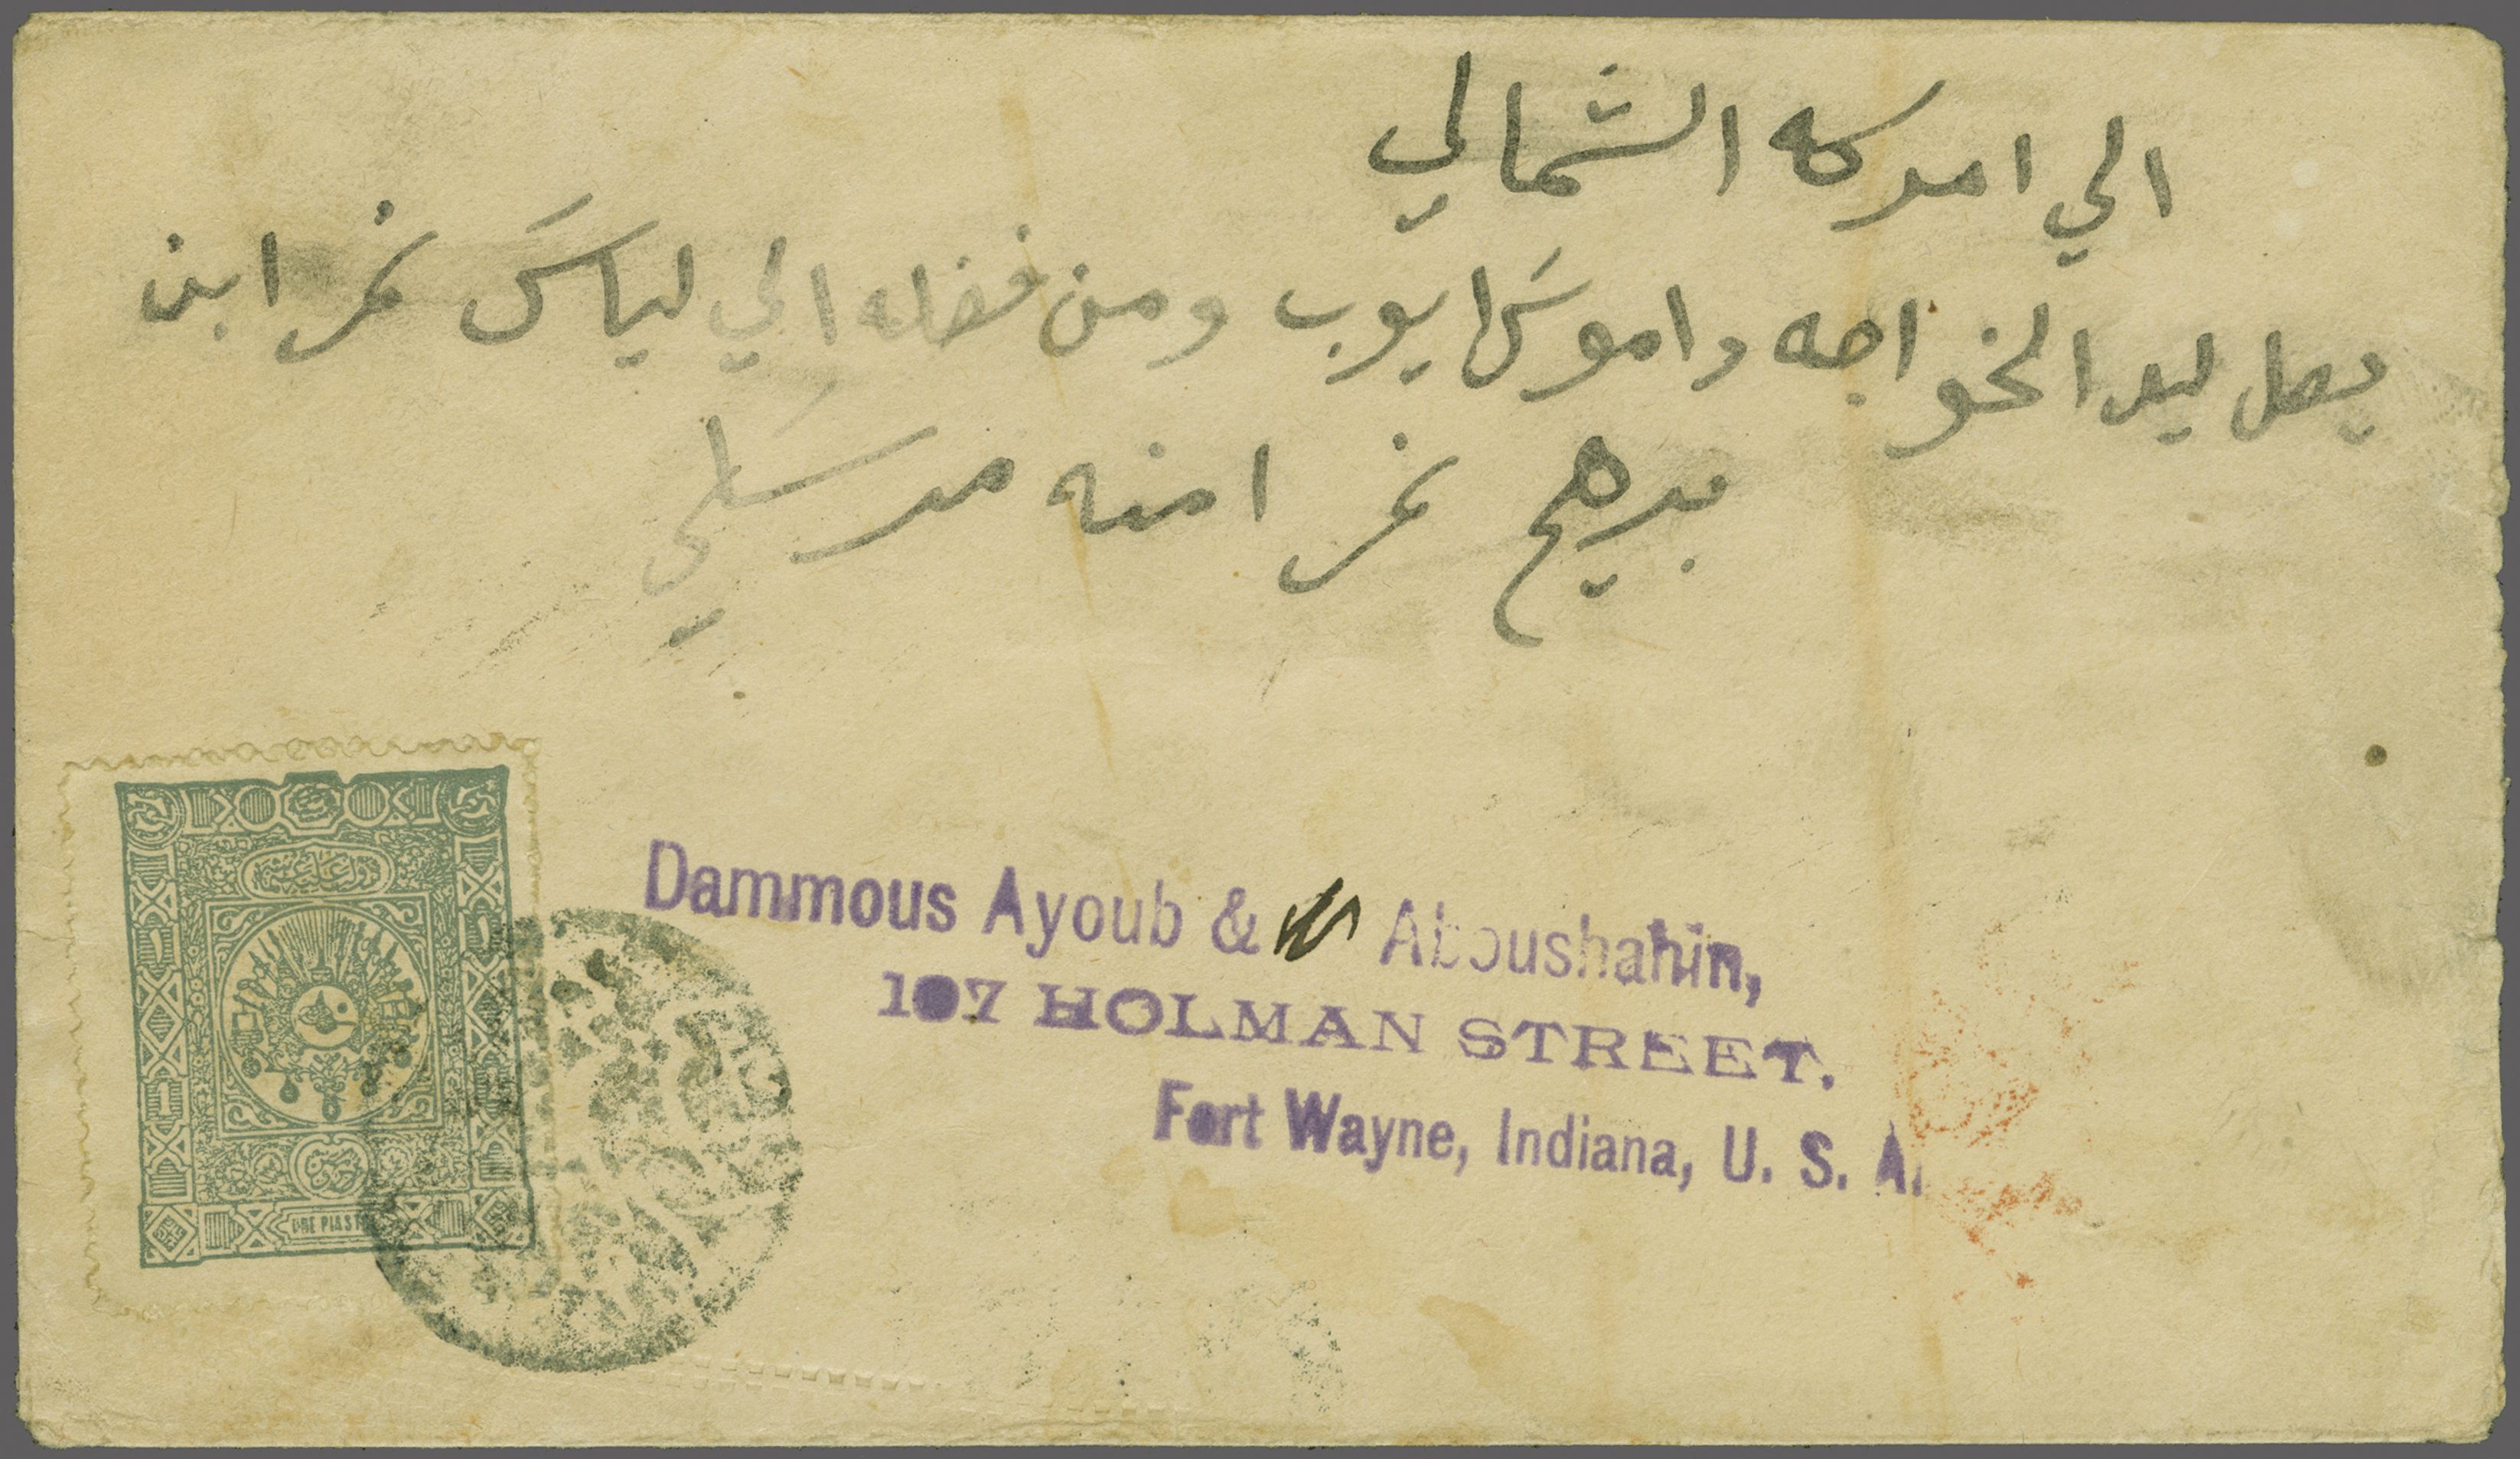 الي امركه الشمالي
يصل ليد الخواجه داموس ايوب ومن فضله الي لياس نمر ابن
نمر امنه مرسلي
Dammous Ayoub & Aboushahin,
107 HOLMAN STREET.
Fort Wayne, Indiana, U. S. A.
UNE PIASTRE